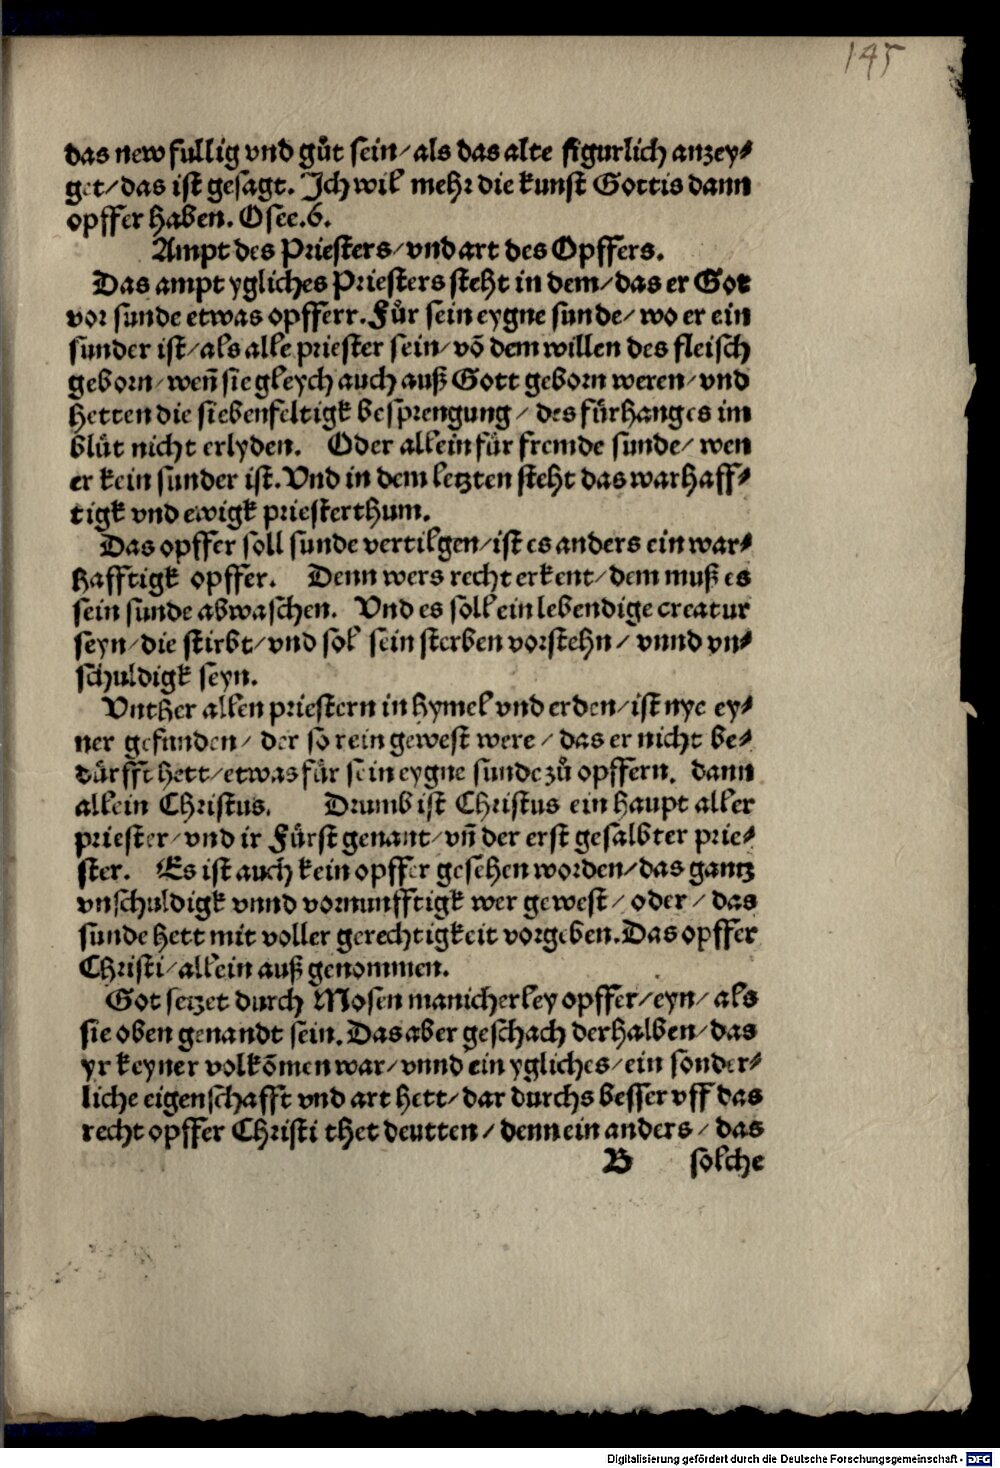 145
das new fullig vnd gůt sein/ als das alte figurlich anzey⸗
get/ das ist gesagt. Ich wil mehr die kunst Gottis dann
opffer haben. Osee.6.
Ampt des Priesters/ vnd art des Opffers.
Das ampt ygliches Priesters steht in dem/ das er Got
vor sunde etwas opfferr. Fůr sein eygne sunde/ wo er ein
sunder ist/ als alle priester sein/ võ dem willen des fleisch
geborn/ weñ sie gleych auch auß Gott geborn weren/ vnd
hetten die siebenfeltigk besprengung/ des fůrhanges im
blůt nicht erlyden. Oder allein fůr fremde sunde/ wen
er kein sunder ist. Vnd in dem letzten steht das warhaff⸗
tigk vnd ewigk priesterthum.
Das opffer soll sunde vertilgen/ ist es anders ein war⸗
hafftigk opffer. Denn wers recht erkent/ dem muß es
sein sunde abwaschen. Vnd es soll ein lebendige creatur
seyn/ die stirbt/ vnd sol sein sterben vorstehn/ vnnd vn⸗
schuldigk seyn.
Vnther allen priestern in hymel vnd erden/ ist nye ey⸗
ner gefunden/ der so rein gewest were/ das er nicht be⸗
důrfft hett/ etwas fůr sein eygne sunde zů opffern. dann
allein Christus. Drumb ist Christus ein haupt aller
priester/ vnd ir Fůrst genant/ vñ der erst gesalbter prie⸗
ster. Es ist auch kein opffer gesehen worden/ das gantz
vnschuldigk vnnd vornunfftigk wer gewest/ oder/ das
sunde hett mit voller gerechtigkeit vorgeben. Das opffer
Christi/ allein auß genommen.
Got setzet durch Mosen manicherley opffer/ eyn/ als
sie oben genandt sein. Das aber geschach derhalben/ das
yr keyner volkõmen war/ vnnd ein ygliches/ ein sonder⸗
liche eigenschafft vnd art hett/ dar durchs besser vff das
recht opffer Christi thet deutten/ denn ein anders/ das
B solche
Digitalisierung gefördert durch die Deutsche Forschungsgemeinschaft - DFG